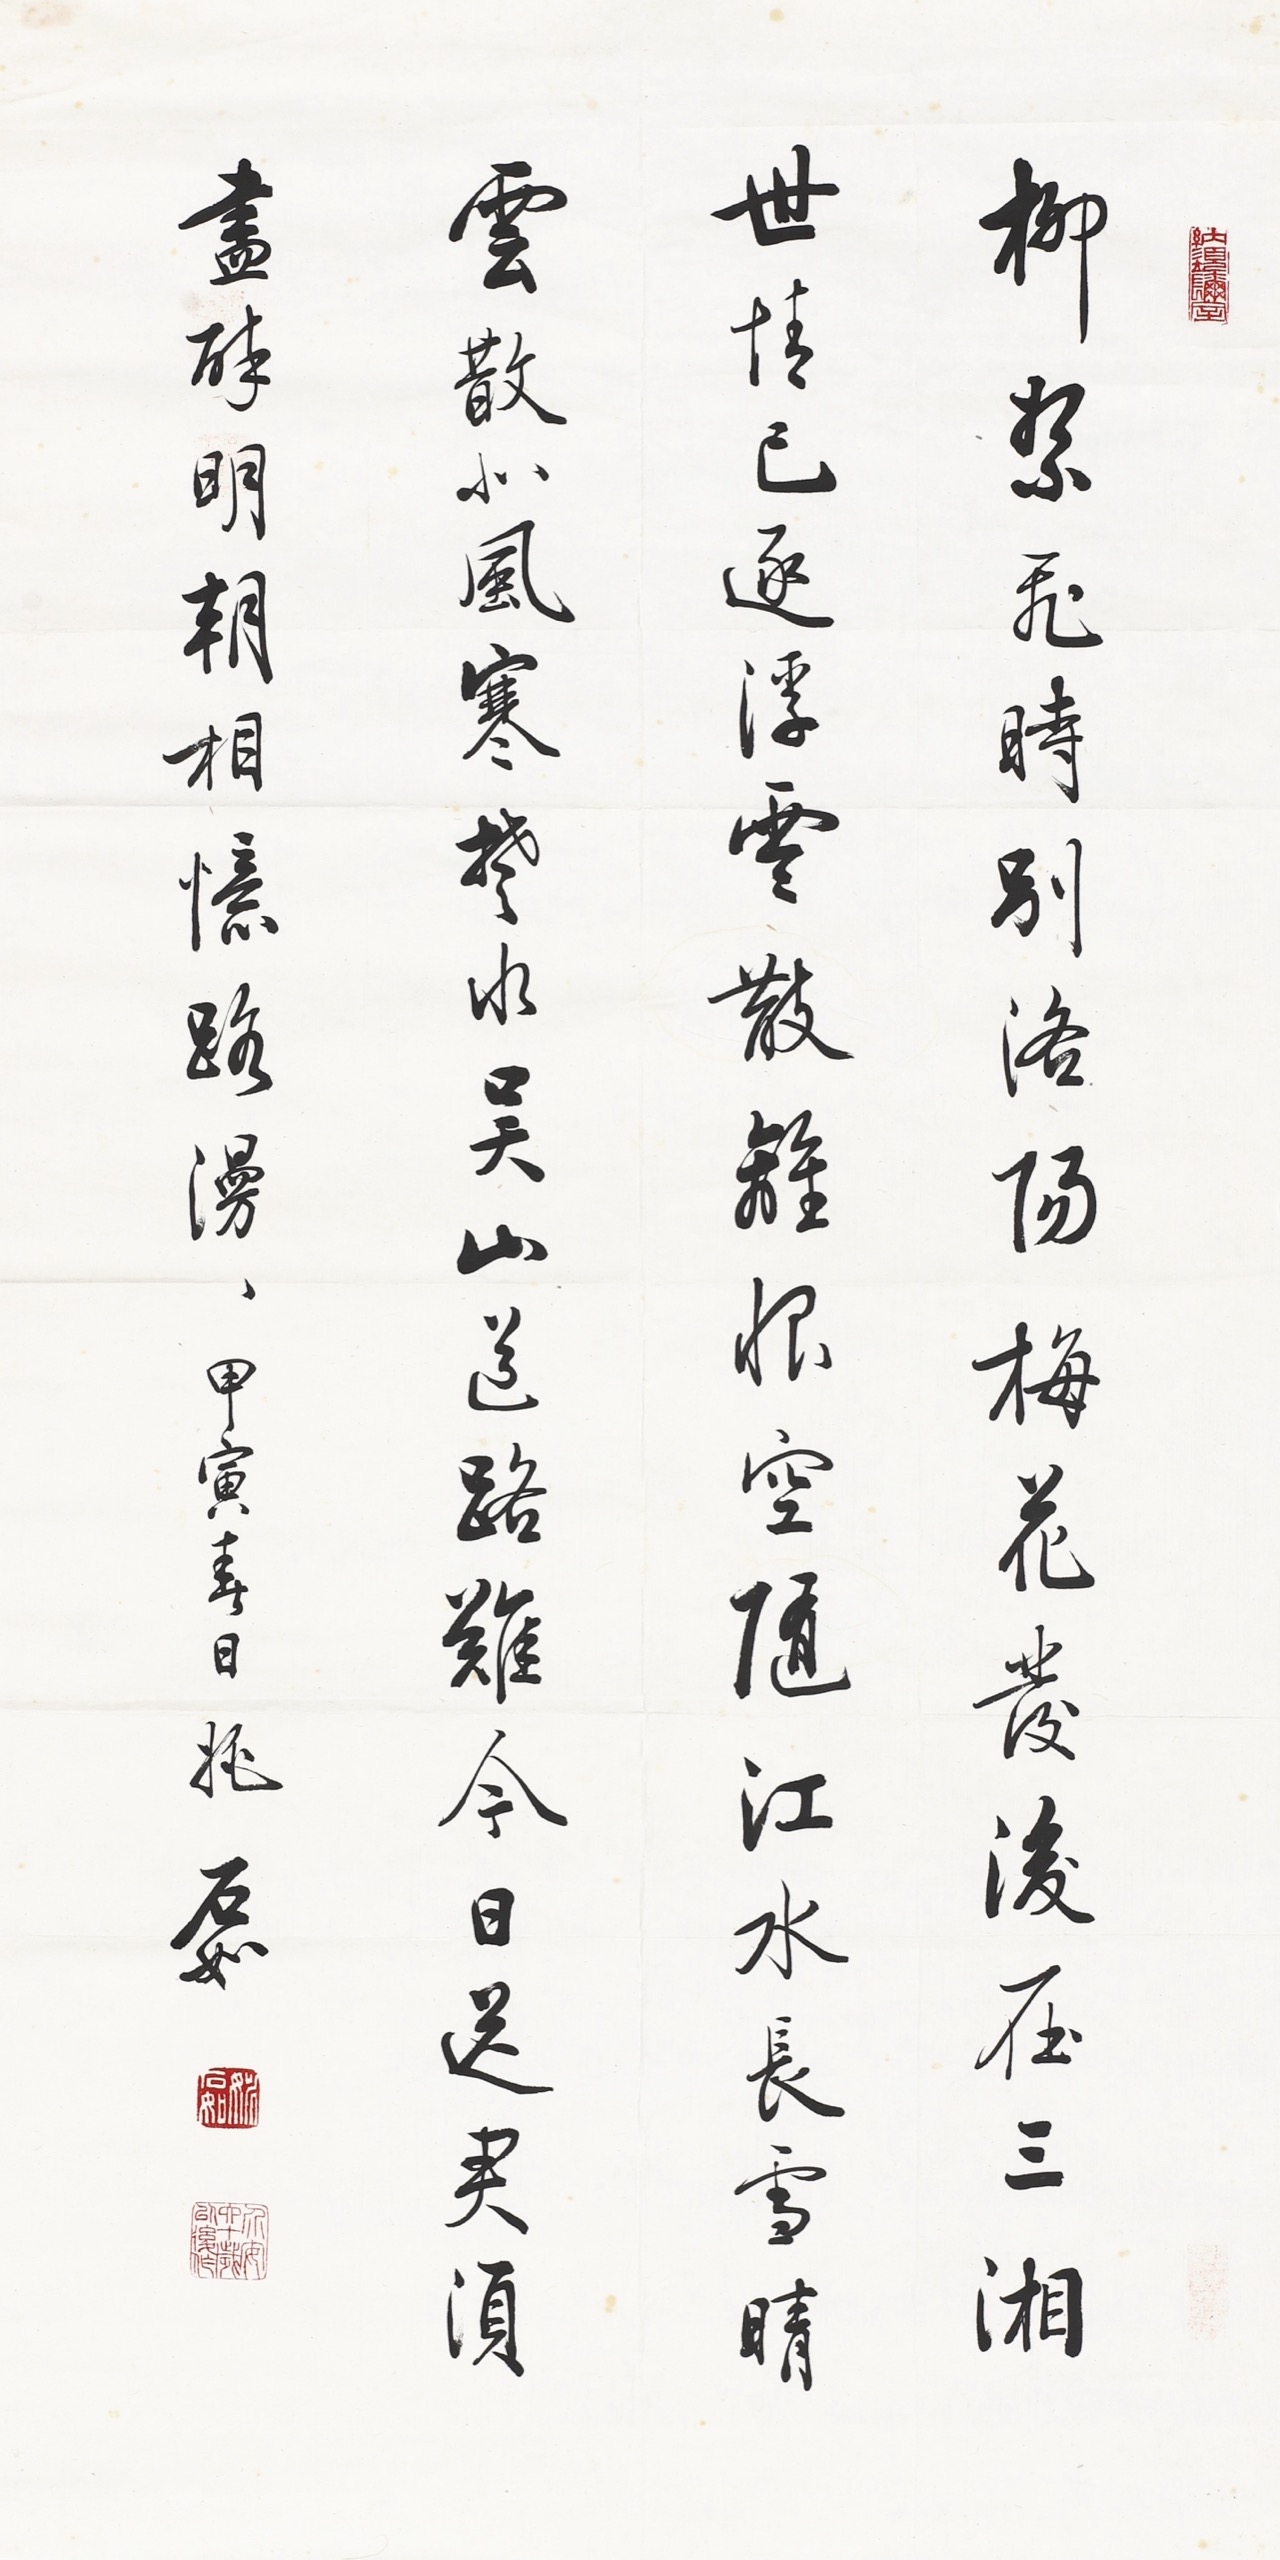 柳絮飛時別洛陽梅花發後在三湘
世情已逐浮雲散離恨空隨江水長雪晴
雲散北風寒楚水吳山道路難今日送君須
盡醉明朝相憶路漫、甲寅春日
石如